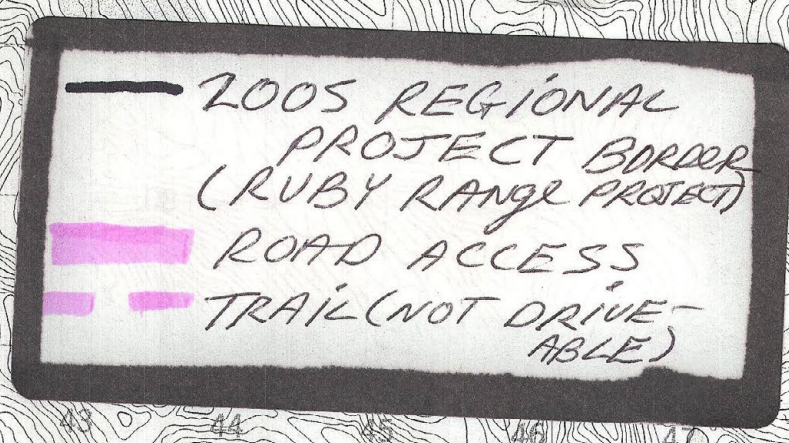 2005 REGIONAL
PROJECT BORDER
(RUBY RANGE PROJECT)
ROAD ACCESS
TRAIL (NOT DRIVE-
ABLE)
43 44 45 46 47